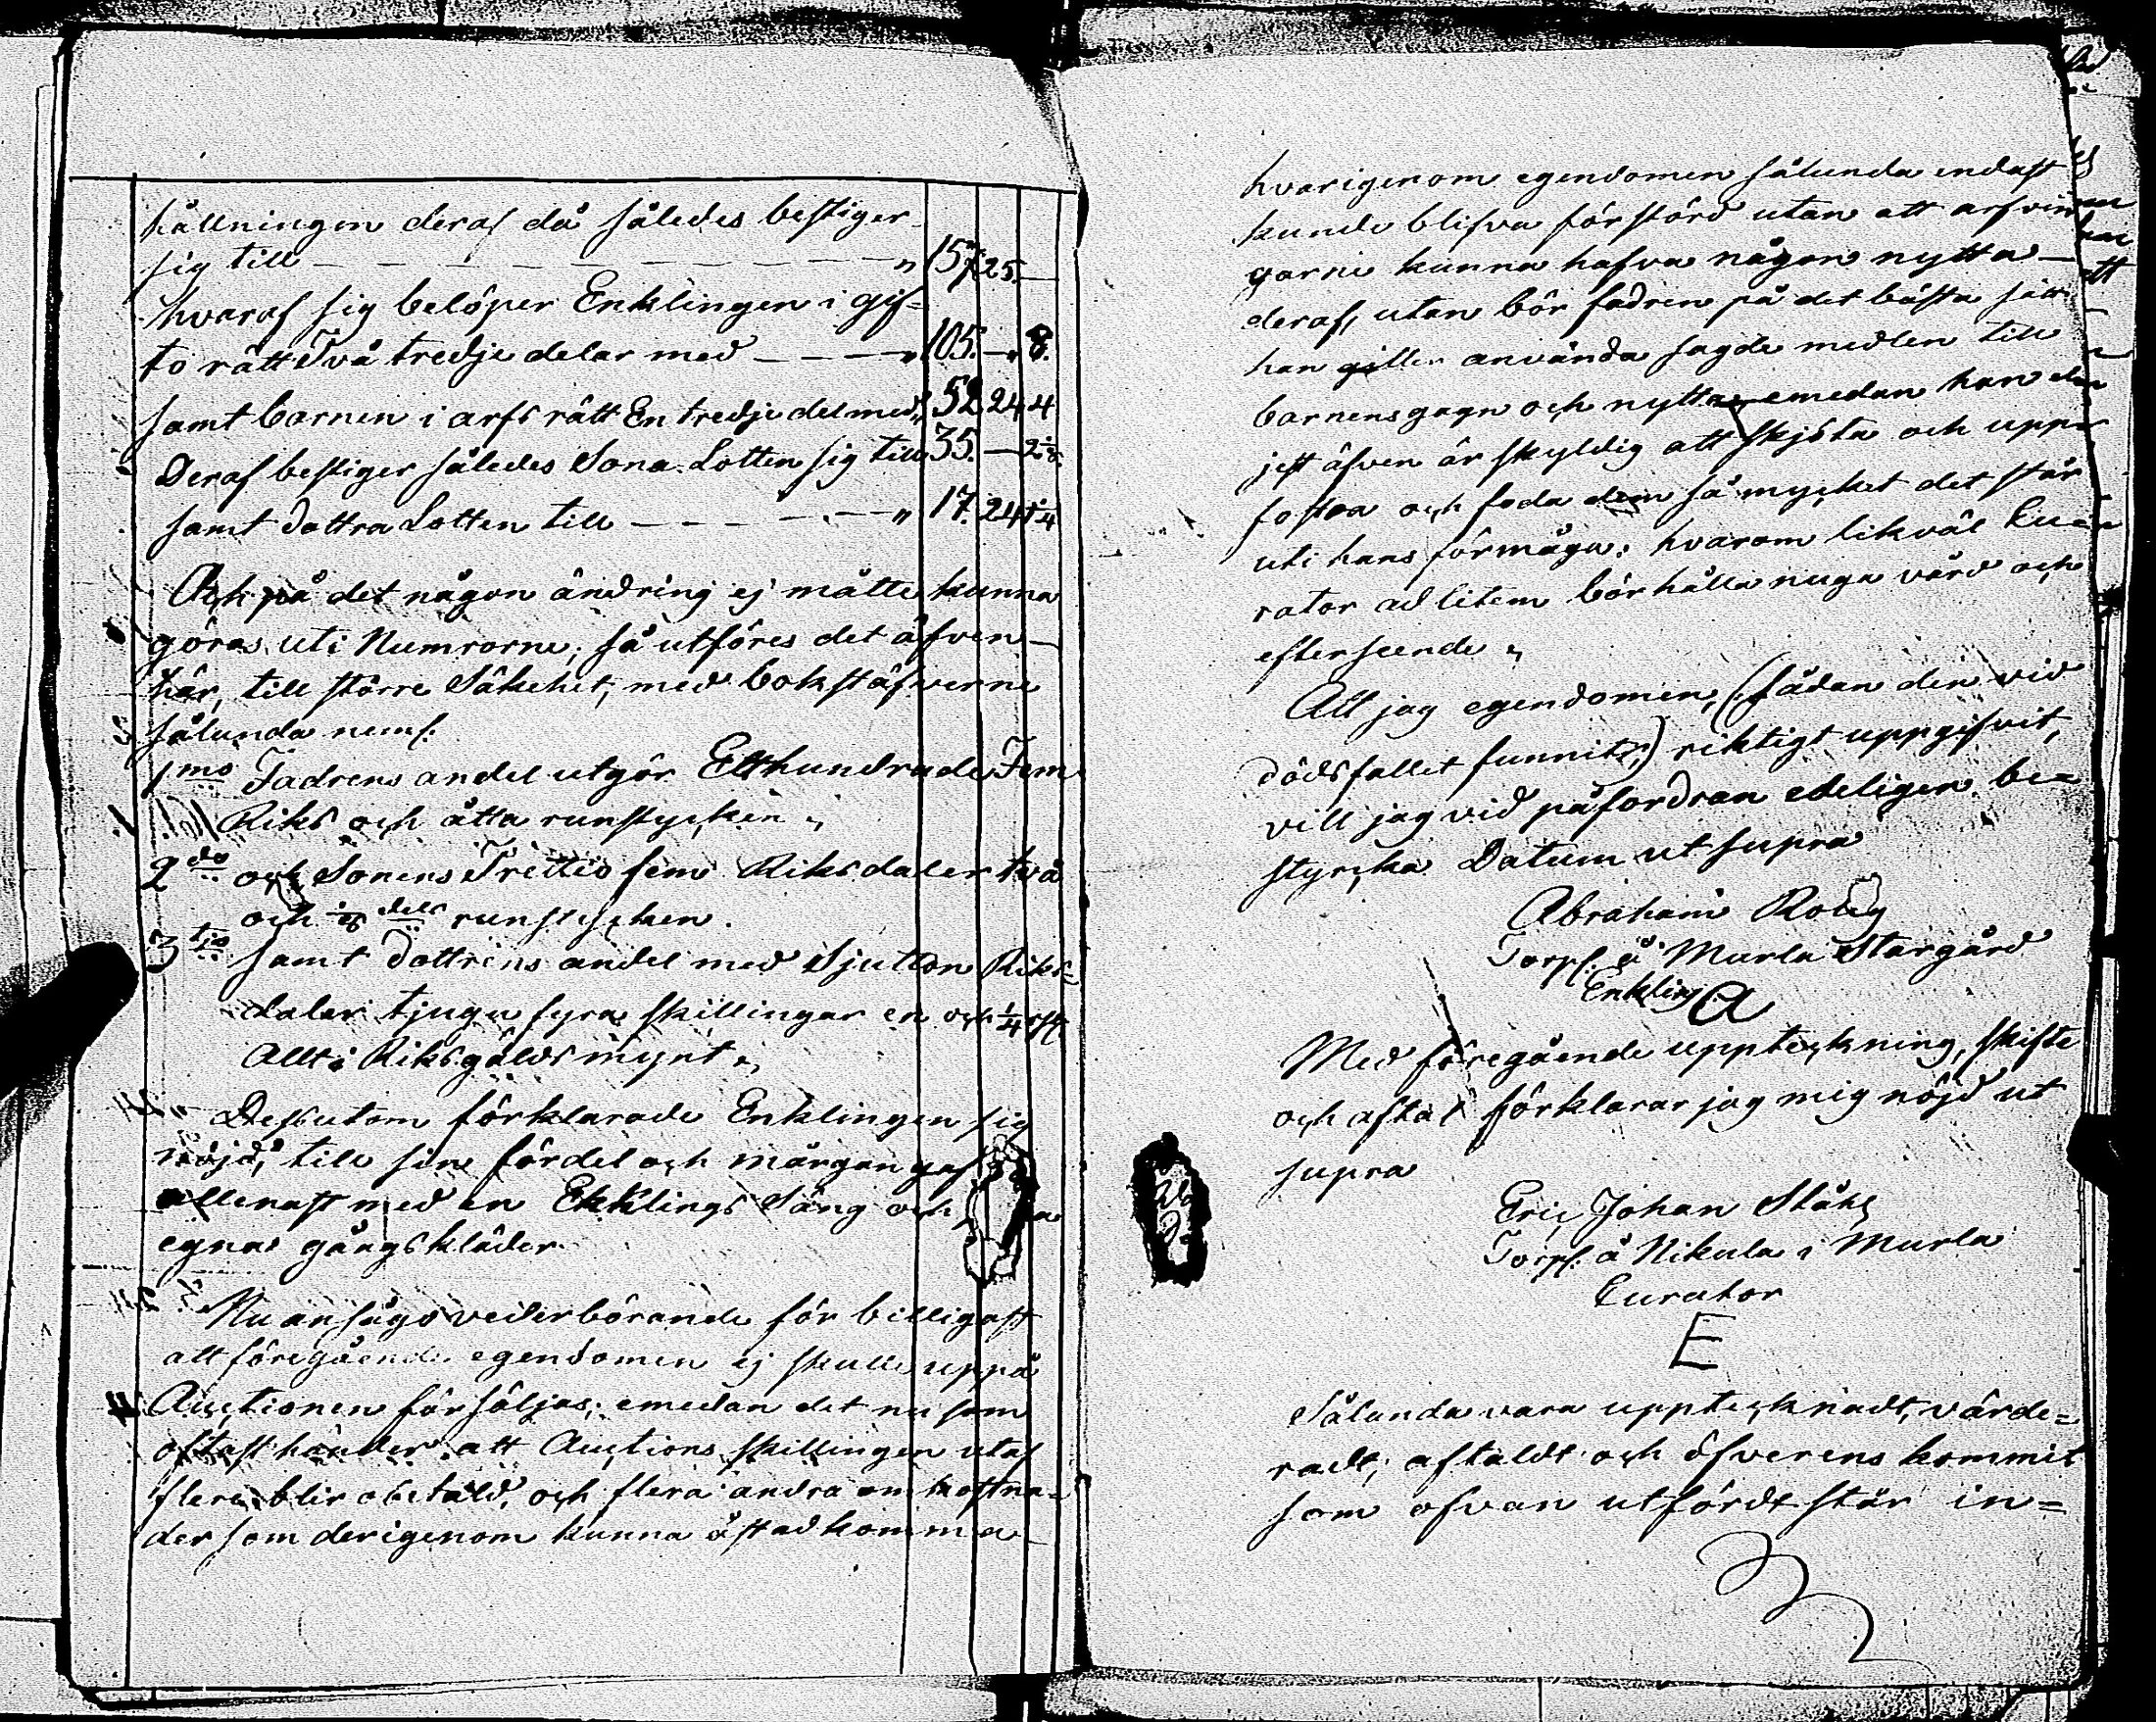 hållningen deraf då således bestiger
sig till — — — — — — — " 157. 25. —
hvaraf sig belöper Enklingen i gif-
to rätt Två tredje delar med — — — " 105. — " 8.
samt barnen i arfs rätt En tredje del med " 52 24 4
Deraf bestiger således Sona Lotten sig till 35. — 2
samt dottra Lotten till — — — — — " 17. 24 1 1/4
Och på det någon ändring ej måtte kunna
göras uti Numrorne, så utföres det äfven —
här, till större Säkehet, med bokstäfverne
sålunda neml:
1mo Fadrens andel utgör Etthundrade Fem
Riks och åtta runstycken
2do och Sonens Trettio fem Riksdaler två
och dels runstycken.
3tio samt dottrens andel med Sjutton Riks-
daler tjugu fyra skillingar en och 1/4 rst.
Allt i Riksgälds mynt
Dessutom förklarade Enklingen sig
nöjd, till sin fördel och mårgan gaf
allenast med en Enklings Säng och
egna gångskläder.
Nu ansågs vederbörande för billigast
att föregående egendomen ej skulle uppå
Auctionen försäljas; emedan det nu som
oftast händer, att Auctions skillingen utaf
flere blir obetald, och flera andra omkostna-
der som derigenom kunna åstadkomma
hvarigenom egendomen sålunda endast
kunde blifva förstörd utan att arfvin
garne kunna hafva någon nytta —
deraf, utan bör fadren på det bästa sätt
han gitter använda sagde medlen till
barnens gagn och nytta emedan han
jest äfven är skyldig att skjöta och upp-
fostra och foda dem så mycket det står
uti hans förmåga; hvarom likväl Cu-
rator ad litem bör hålla nuga vård och
efterseende
Att jag egendomen, (sådan den vid
dödsfallet funnits) riktigt uppgifvit,
vill jag vid påfordran edeligen be-
styrcka Datum ut supra
Abraham
Torp: å Murla Storgård
Enkling A
Med föregående uppteckning, skifte
och aftal förklarar jag mig nöjd ut
supra
Eric Johan
Torp: å Nikula i Murla
Curator
E
Sålunda vara upptecknadt, värde-
radt, aftaldt och öfverens kommit
som ofvan utfördt står in-